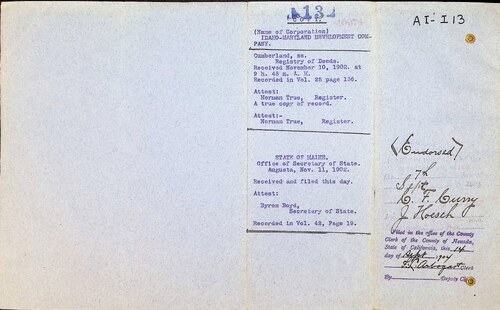 13
AI-I 13
(Name of Corporation)
IDAHO-MARYLAND DEVELOPMENT COM-
PANY.
Cumberland, ss.
Registry of Deeds.
Received November 10, 1902. at
9 h. 45 m. A. M.
Recorded in Vol. 25 page 136.
Attest:
Norman True, Register.
A true copy of record.
Attest:-
Norman True, Register.
STATE OF MAINE.
Office of Secretary of State.
Augusta, Nov. 11, 1902.
Received and filed this day.
Attest:
Byron Boyd,
Secretary of State.
Recorded in Vol. 42, Page 19.
(Endorsed)
C. F. Curry
J Hoesch
Filed in the office of the County
Clerk of the County of Nevada,
State of California, this 14
day of Sept 1904
F. L. Arbogast Clerk
By Deputy Clerk